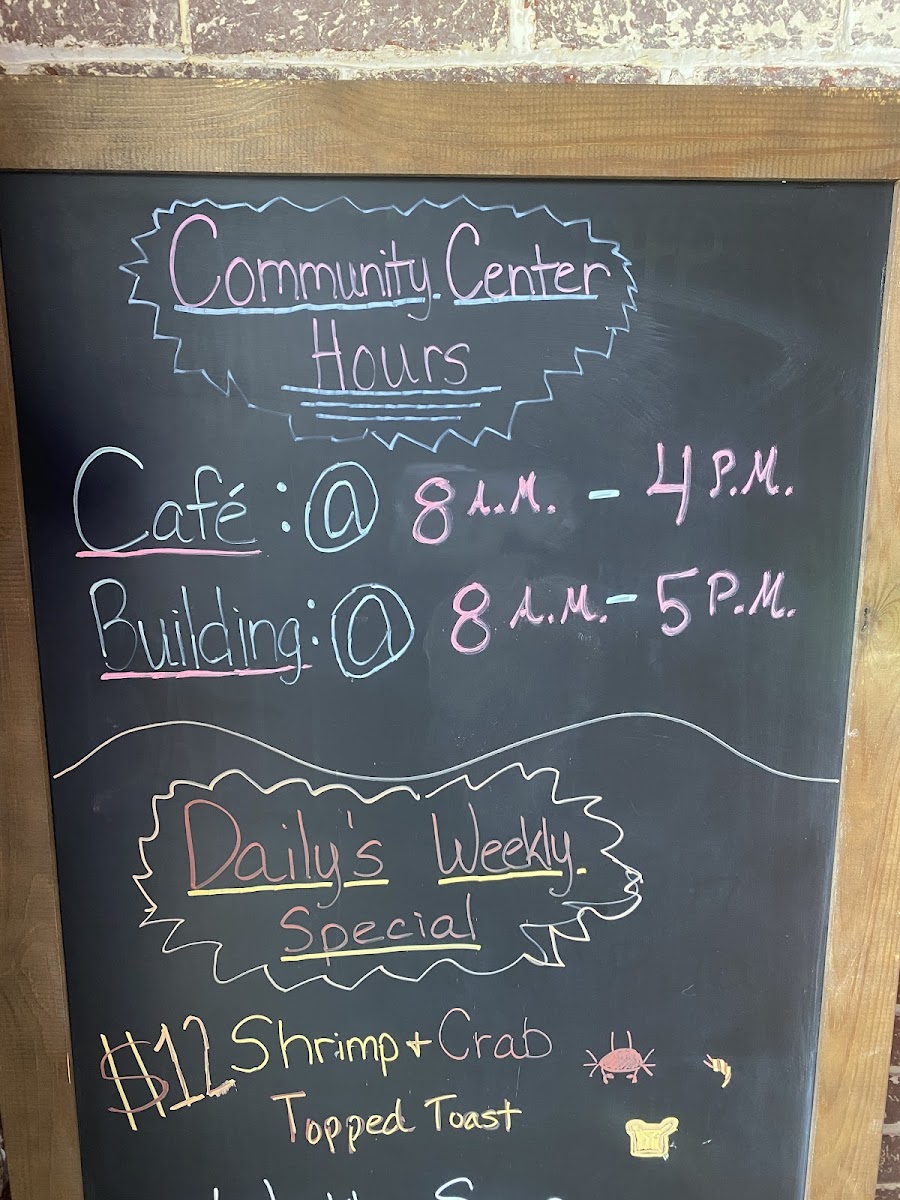 Community Center
Hours
Café: @ 8 A.M. - 4 P.M.
Building: @ 8 A.M. - 5 P.M.
Daily's Weekly
Special
$12 Shrimp + Crab
Topped Toast